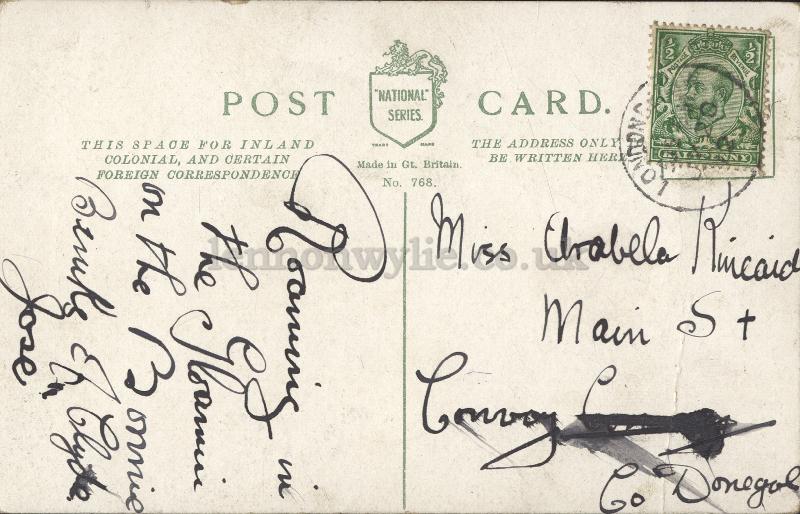 POST CARD.
"NATIONAL"
SERIES.
TRADE MARK
THIS SPACE FOR INLAND
COLONIAL, AND CERTAIN
FOREIGN CORRESPONDENCE
Made in Gt. Britain.
No. 768.
THE ADDRESS ONLY
BE WRITTEN HERE
½ ½
HALFPENNY
LONDOND
Roaming in
the Gloamin
on the Bonnie
Banks of Clyde
Jose
Miss Arabela Kincaid
Main St
Convoy
Co Donegal
lennonwylie.co.uk